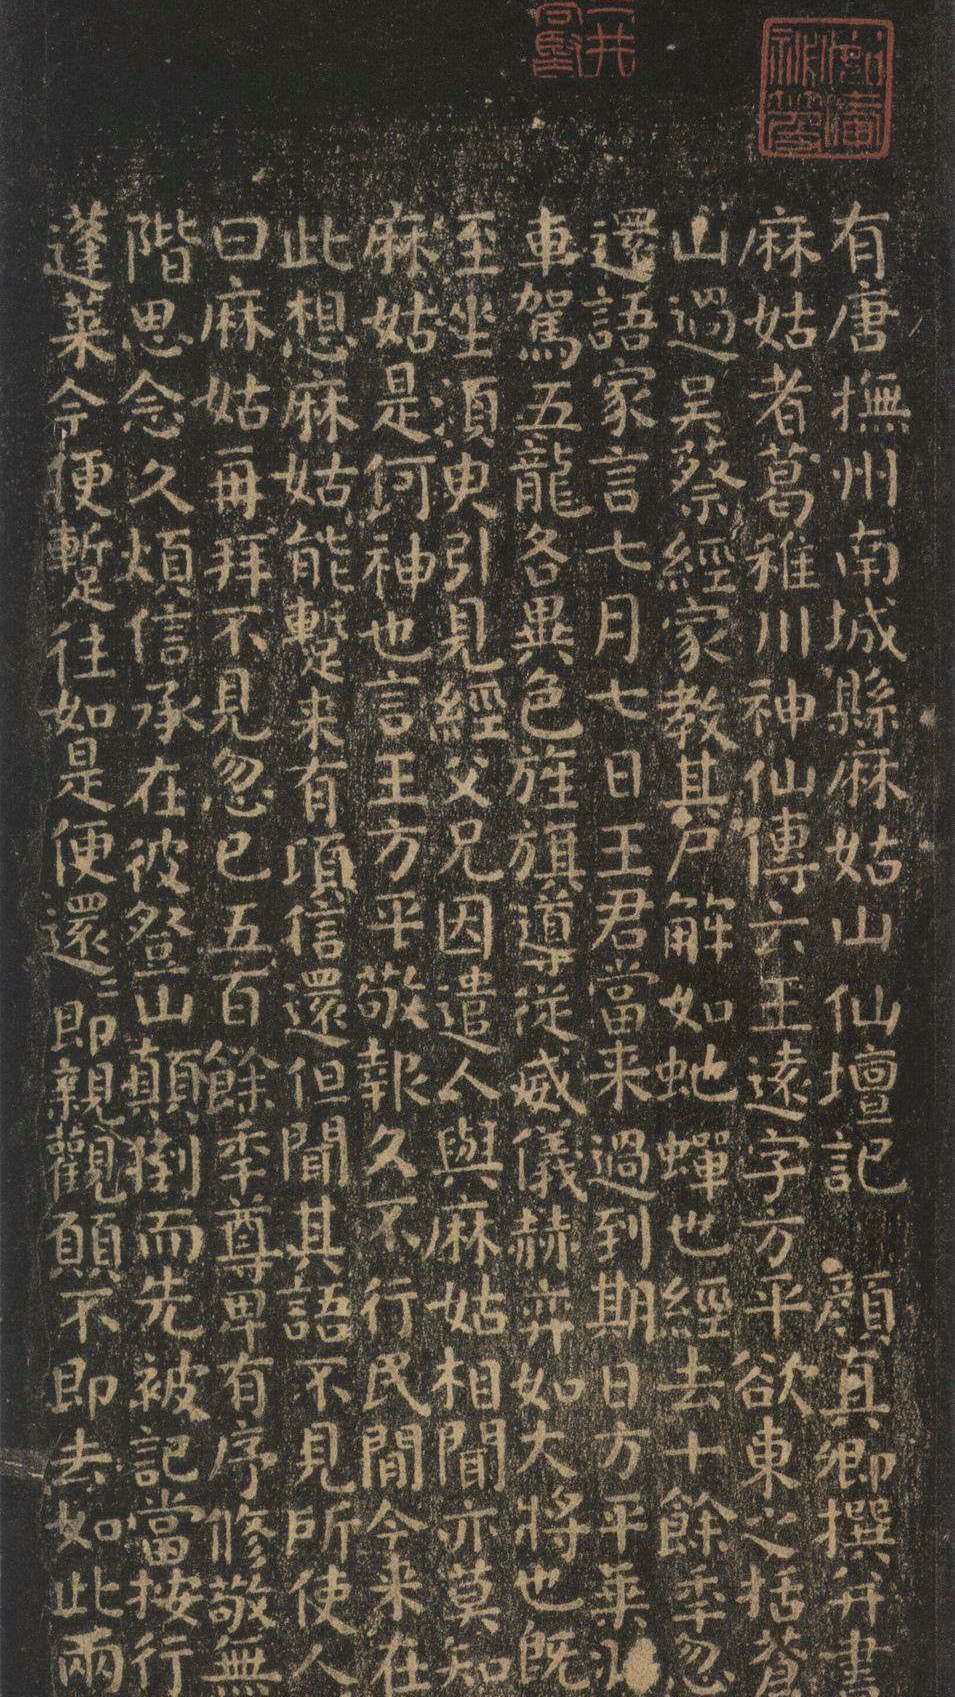 有唐撫州南城縣麻姑山仙壇記 顏真卿撰并書
麻姑者葛稚川神仙傳云王遠字方平欲東之括蒼
山過吳蔡經家教其尸解如虵蟬也經去十餘年忽
還語家言七月七日王君當来過到期日方平乗
車駕五龍各異色旌旗導從威儀赫弈如大將也既
至坐須臾引見經父兄因遣人與麻姑相聞亦莫知
麻姑是何神也言王方平敬報久不行民間今来在
此想麻姑能暫来有頃信還但聞其語不見所使人
曰麻姑再拜不見忽已五百餘年尊卑有序修敬無
階思念久煩信承在彼登山顛倒而先被記當按行
蓬萊今便暫往如是便還還即親觀願不即去如此兩